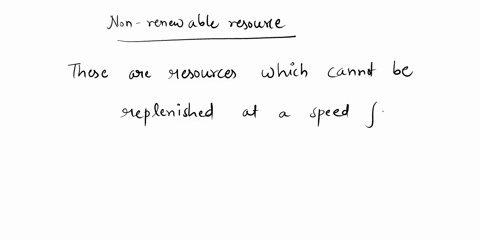 Non-renewable resource
These are resources which cannot be
replenished at a speed